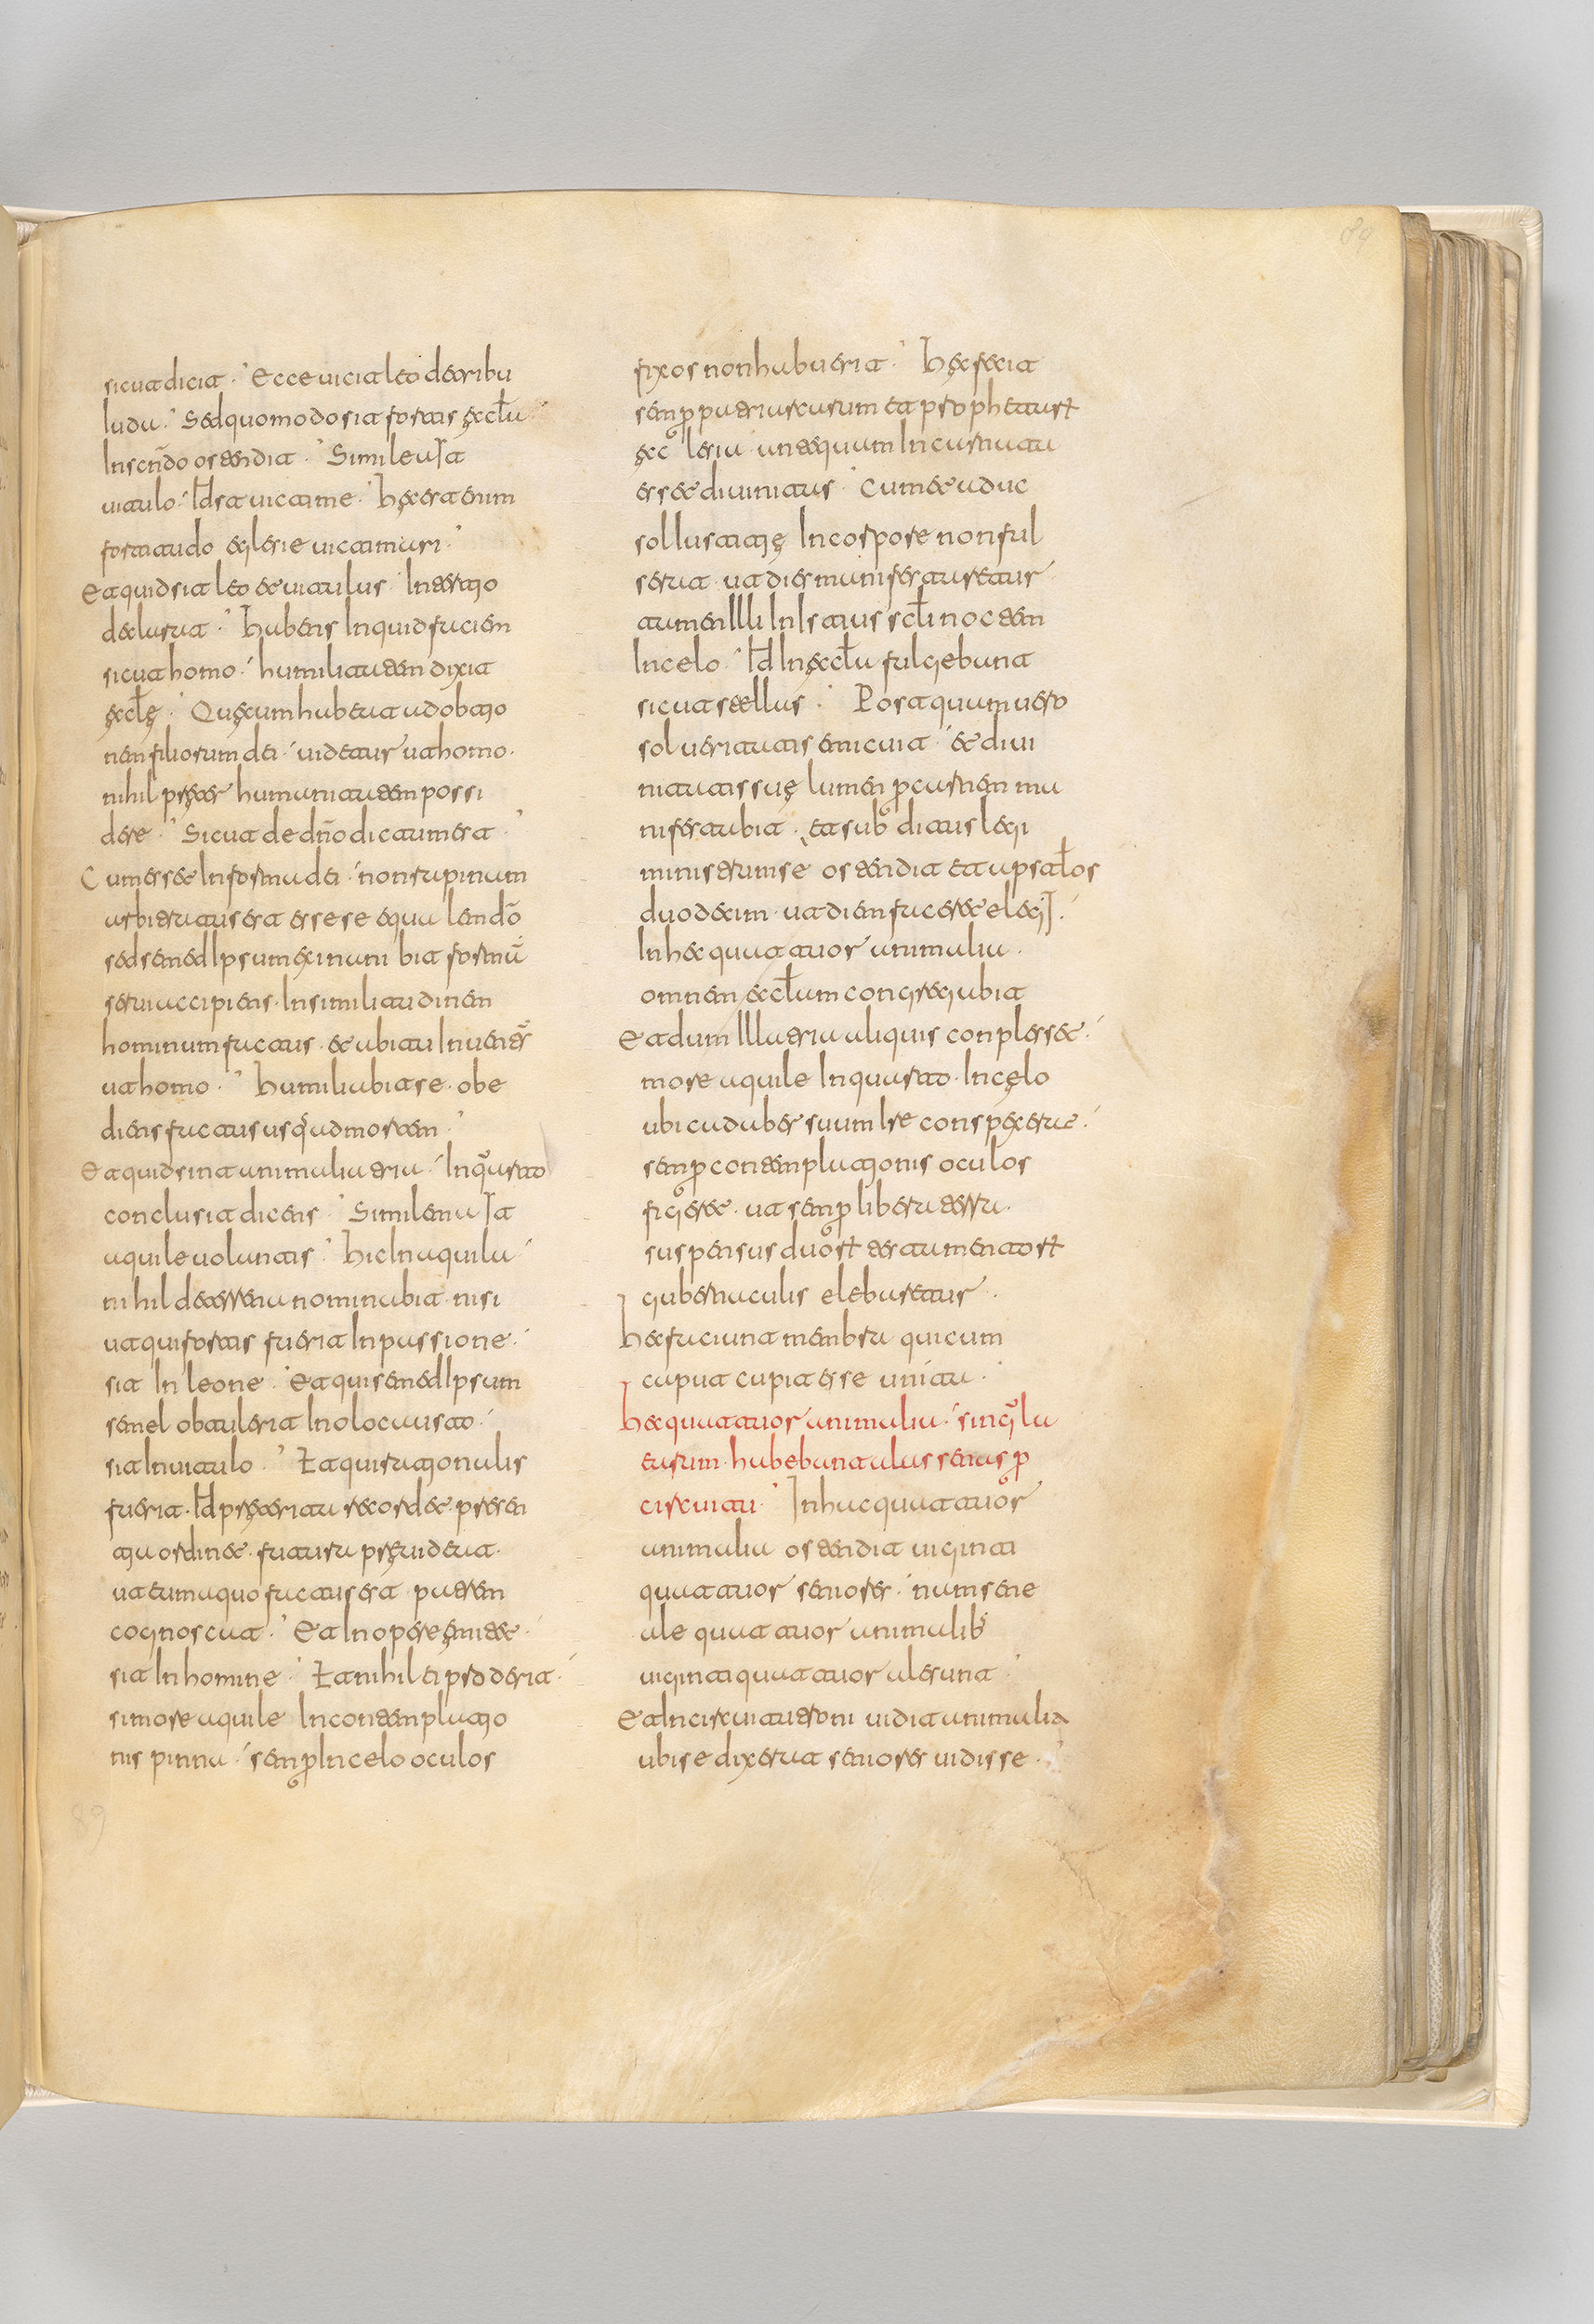 sicut dicit. Ecce uicit leo de tribu
Iuda. Sed quomodo sit fortis ęccła
Inscn̄do ostendit. Simile aūt
uitulo. Id st uictime. Hęc erat enim
fortitudo eglesie uictimari.
Et quid sit leo et uitulus In tertio
declarat. Habens Inquid faciem
sicut homo. humilitatem dixit
ęcclę. Quę cum habeat adobtio
nem filiorum dei. uidetur ut homo.
nihil pręter humanitatem possi
dere. Sicut de dn̄o dictum est.
Cum esset In forma dei. non rapinam
arbitratus est esse se equalem dō
sed semedIpsum exinanibit formā
serui accipiens. In similitudinem
hominum factus. et abitu Inuents
ut homo. Humiliabit se. obe
diens factus usq admortem.
Et quid sint animalia tria. In quarto
conclusit dicens. Similem aūt
aquile uolantis. Hic In aquila
nihil de terrena nominabit. nisi
ut qui fortis fuerit In passione.
sit In leone. Et qui semedIpsum
semel obtulerit In olocausto.
sit In uitulo. Et qui rationalis
fuerit. Id pręterita recordet. presen
tia ordinet. futura pręuideat.
ut eum aquo factus est patrem
cognoscat. Et In opere ęnitet
sit In homine. Et nihil ei proderit.
si more aquile In contemplatio
nis pinna. semp In celo oculos
fixos non habuerit. Hęc fecit
semp patriarcarum et prophetarū
ęcclesia antequam In carnata
esset diuinitas. Cum et aduc
sol Iustitię In corpore non ful
serat. ut dies manifestaretur.
tamen Illi In Istius scłi noctem
In celo. Id In ęccła fulgebunt
sicut stellas. Postquam uero
sol ueritatis emicuit. et diui
nitatis suę lumen p carnem ma
nifestabit. et sub dictis legi
ministrum se ostendit et apsłos
duodecim. ut diem faceret elegit.
In hec quattuor animalia.
omnem ęccłam congregabit
Et dum Illa tria aliquis conplesset.
more aquile In quarto. In cęlo
ubi caduber suum Ire conspexerat.
semp contemplationis oculos
figeret. ut semp libera terra.
suspensus duorū testamentorū
gubernaculis elebaretur.
hec faciunt membra qui cum
caput cupit esse unita.
hec quattuor animalia. singla
earum. habebunt alas senas p
circuita. In hac quattuor
animalia ostendit uiginti
quattuor seniores. nam sene
ale quattuor animalib
uiginti quattuor ale sunt.
Et In circuitu troni uidit animalia
ubi se dixerat seniores uidisse.
89
89